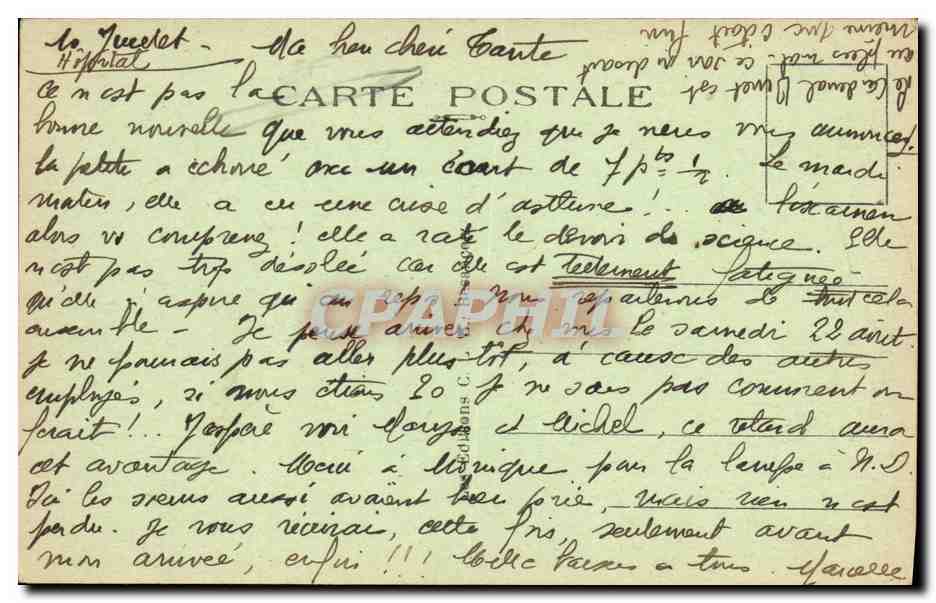 10 Juillet - Ma bien chère Tante
Hôpital
CARTE POSTALE
Ce n'est pas la
bonne nouvelle que vous attendiez que je viens vous annoncer!
la petite a échoué avec un écart de 7 pts 1/2. Le mardi
matin, elle a eu une crise d'asthme!.. l'examen
alors vs comprenez! elle a raté le devoir de science. Elle
n'est pas trop désolée car elle est tellement fatiguée
qu'elle n'aspire qu'au repos. Nous reparlerons de tout cela
ensemble - Je pense arriver chez vous le samedi 22 août.
je ne pourrais pas aller plus tôt, à cause des autres
employés, si nous étions 20 je ne sais pas comment on
ferait!... J'espère voir et Michel, ce retard aura
cet avantage. Merci à Monique pour la lampe à N.D.
Ici les sœurs aussi avaient bien prié, mais rien n'est
perdu. Je vous récrirai, cette fois, seulement avant
mon arrivée, enfin!!! Mille baisers à tous. Marcelle
le Cardinal Binet est
au plus mal. ce soir on disait
même que c'était fini
Editions C.
CPAPHIL